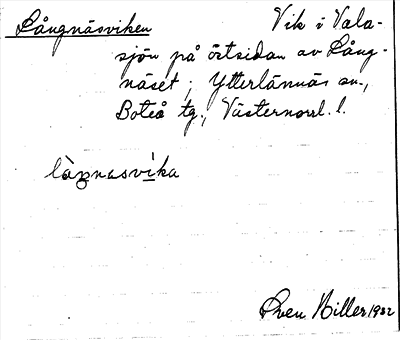 Långnäsviken Vik i Vala-
sjön på östsidan av Lång-
näset; Ytterlännäs sn.,
Boteå tg., Västernorrl. l.
làŋnasvika
Sven Hiller 1932